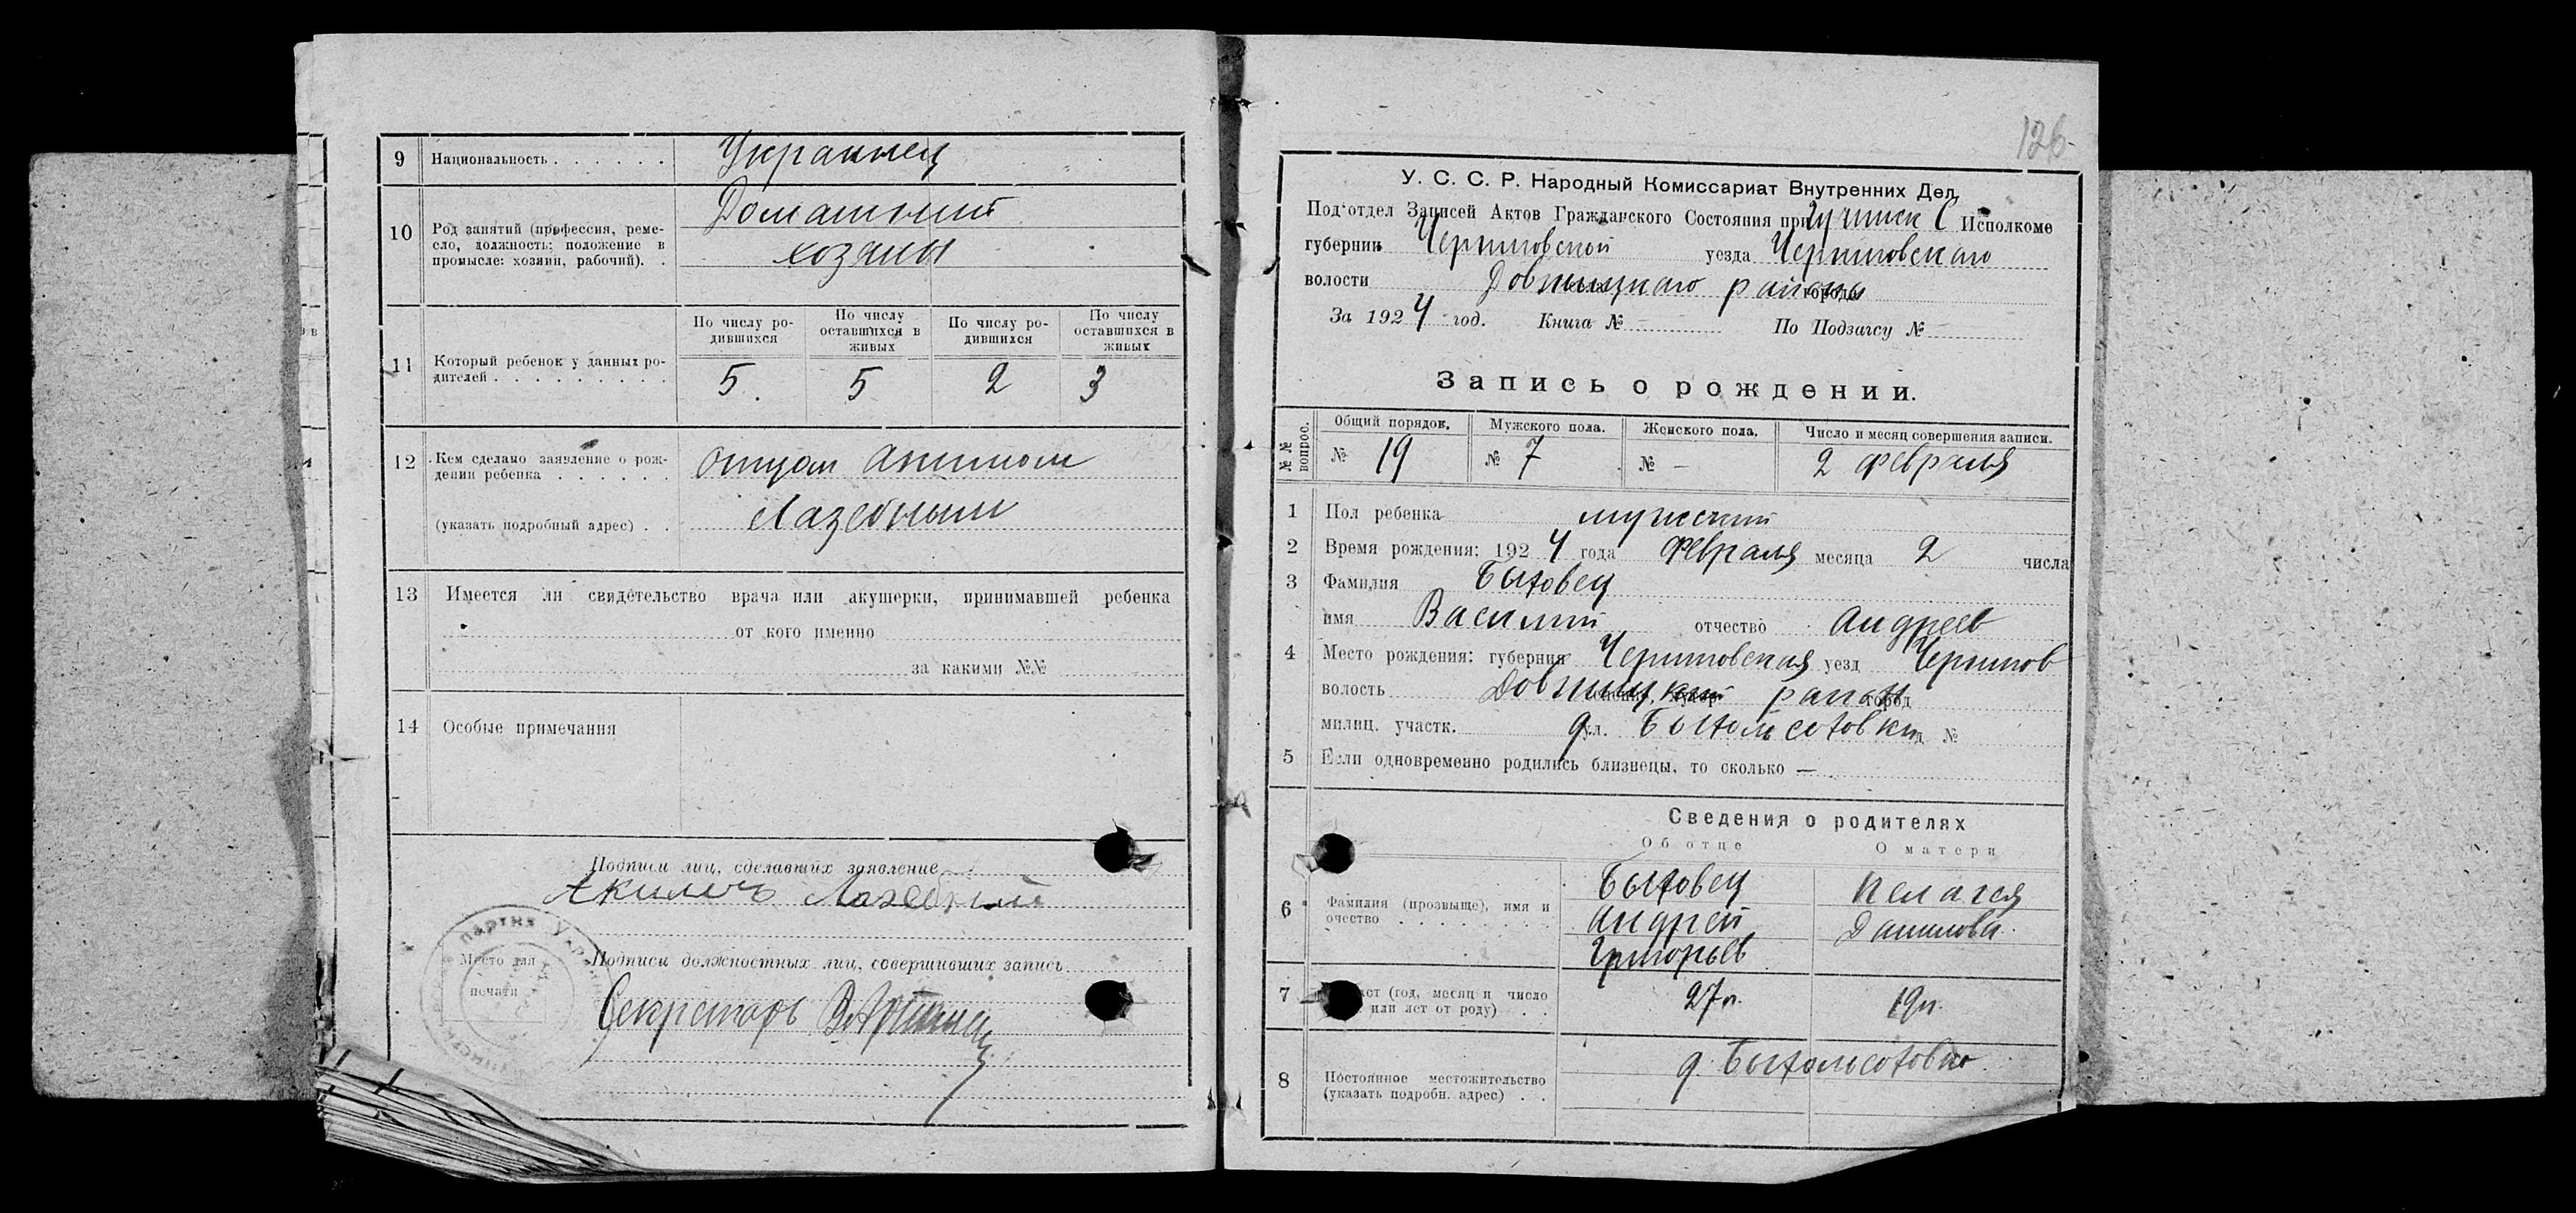 9 Национальность . . . . . . Украинец
10 Род занятий (профессия, реме-
сло, должность: положение в
промысле: хозяин, рабочий). .
Домашний
хозяин
11 Который ребенок у данных ро-
дителей . . . . . . . . . .
По числу ро-
дившихся
По числу
оставшихся в
живых
По числу ро-
дившихся
По числу
оставшихся в
живых
5. 5 2 3
12 Кем сделано заявление о рож-
дении ребенка . . . . . .
(указать подробный адрес) . .
отцом Акимом
Лазебным
13 Имеется ли свидетельство врача или акушерки, принимавшей ребенка
от кого именно
за какими №№
14 Особые примечания
Подписи лиц, сделавших заявление
Лазебний
Место для
печати
Подписи должностных лиц, совершивших запись
Секретарь
126
У. С. С. Р. Народный Комиссариат Внутренних Дел
Под'отдел Записей Актов Гражданского Состояния при Исполкоме
губернии Черниговской уезда Черниговского
волости района города
За 1924 год. Книга № - По Подзагсу № -
Запись о рождении.
№ № вопрос.
Общий порядок. Мужского пола. Женского пола. Число и месяц совершения записи.
№ 19 № 7 № - 2 февраля
1 Пол ребенка мужеский
2 Время рождения: 1924 года февраля месяца 2 числа
3 Фамилия Быховец
имя Василий отчество Андреев
4 Место рождения: губерния Черниговская уезд Чернигов
волость район город
милиц. участк. ул. д №
5 Если одновременно родились близнецы, то сколько —
Сведения о родителях
Об отце О матери
6 Фамилия (прозвыще), имя и
очество . . . . . . .
Быховец
Андрей
Григорьев
Пелагея
Данилова
7 (год, месяц и число
или лет от роду) . .
27 л. 19 л.
8 Постоянное местожительство
(указать подробн. адрес) . .